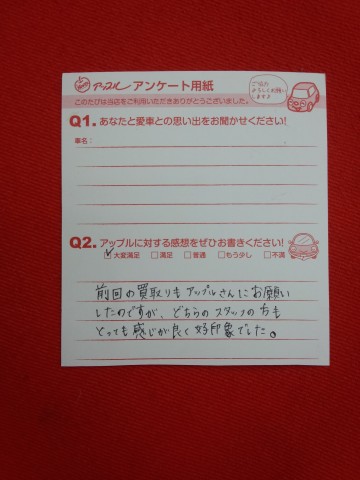 アップル アンケート用紙
ご協力
よろしくお願い
します♪
このたびは当店をご利用いただきありがとうございました。
Q1. あなたと愛車との思い出をお聞かせください!
車名:
Q2. アップルに対する感想をぜひお書きください!
大変満足 満足 普通 もう少し 不満
前回の買取りもアップルさんにお願い
したのですが、どちらのスタッフの方も
とっても感じが良く好印象でした。